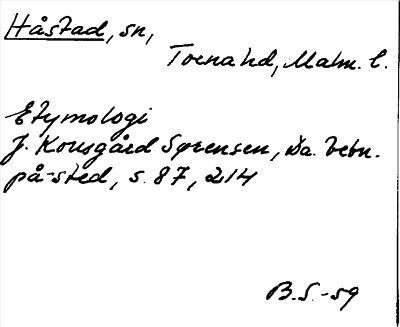 Håstad, sn,
Torna hd, Malm. l.
Etymologi
J. Kousgård Sørensen, Da. bebn.
på -sted, s. 87, 214
B.S. -59